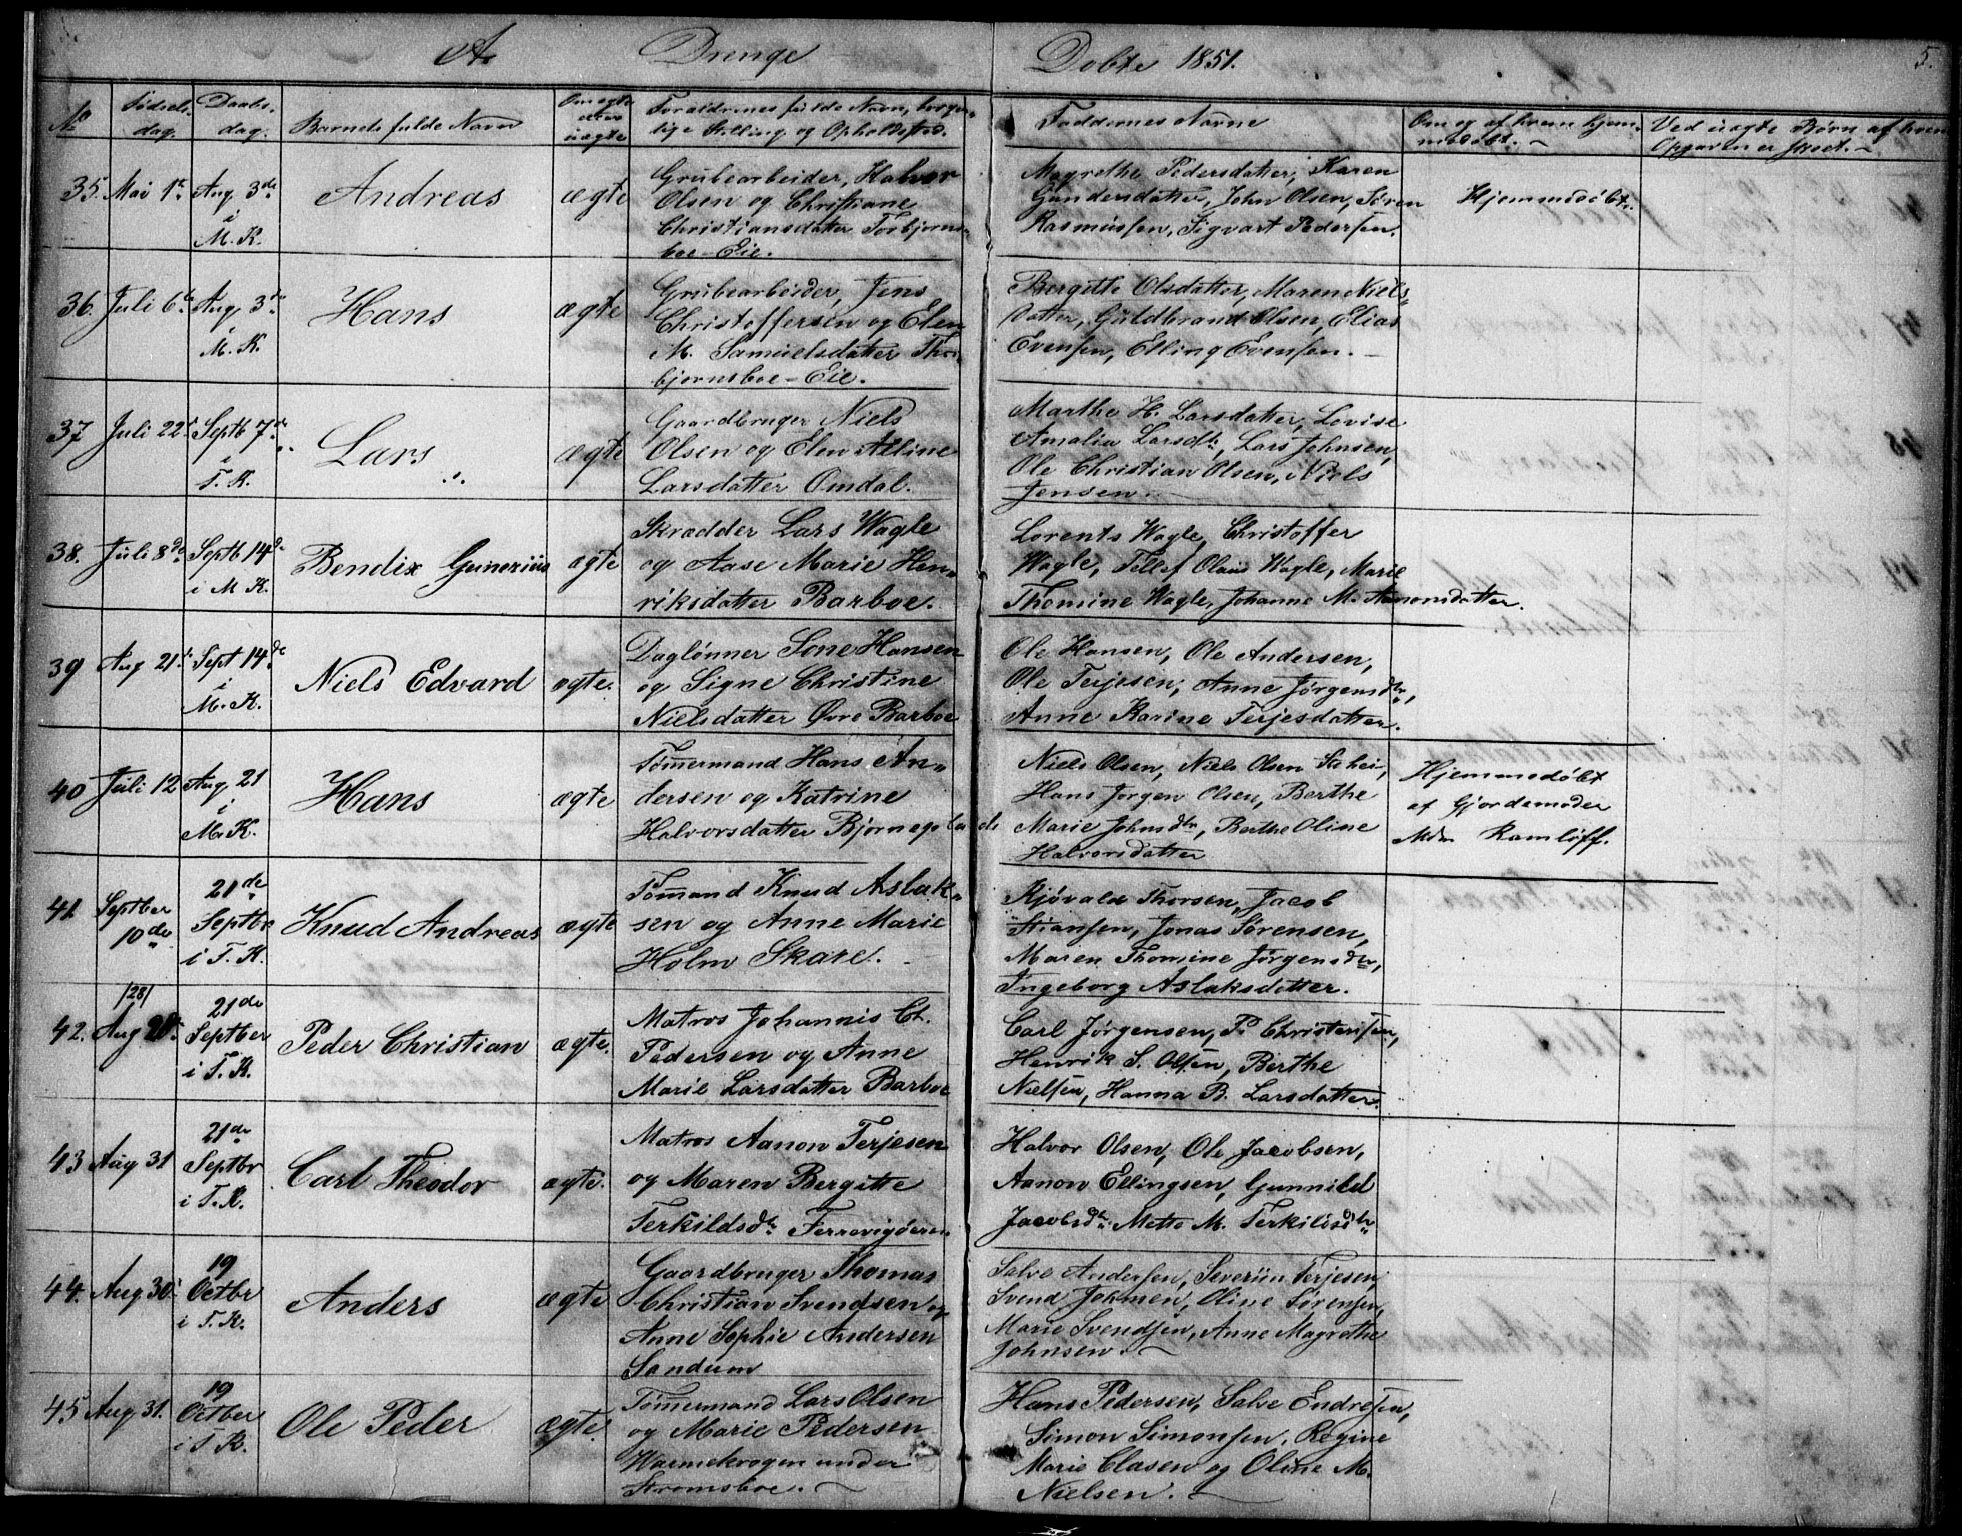 A. Drenge Døbte 1851. 5.
No Fødsels- dag. Daabs- dag. Barnets fulde Navn Om ægte eller uægte Forældrenes fulde Navn, borger- lige Stilling og Opholdssted. Faddernes Navne Om og af hvem hjem- medøbt. Ved uægte Børn af hvem Opgaven er skeet.
35. Mai 1te Aug 3die i M. K. Andreas ægte
Grubearbeider, Halvor
Olsen og Christiane
Christiansdatter Torbjørns-
boe-Eie.
Magrethe Pedersdatter, Karen
Gundersdatter, John Olsen, Søren
Rasmussen, Sigvart Pedersen.
Hjemmedøbt.
36. Juli 6te Aug 3die i M. K. Hans ægte
Grubearbeider, Jens
Christoffersen og Elen
M. Samuelsdatter Thor-
bjørnsboe-Eie.
Bergitte Olsdatter, Maren Niels
datter, Guldbrand Olsen, Elias
Evensen, Elling Evensen.
37 Juli 22 Septb 7de i T. K. Lars ægte
Gaardbruger Niels
Olsen og Elen Alline
Larsdatter Omdal.
Marthe H. Larsdatter, Lovise
Amalia Larsdtr, Lars Johnsen,
Ole Christian Olsen, Niels
Jensen.
38. Juli 8de Septb 14de i M K. Bendix Gunerius ægte
Skrædder Lars Wagle
og Aase Marie Hen-
riksdatter Barboe.
Lorents Wagle, Christoffer
Wagle, Tellef Olaus Wagle, Marie
Thomine Wagle, Johanne M. Aanonsdatter.
39 Aug 21 Sept 14de i M. K. Niels Edvard ægte.
Daglønner Sone Hansen
og Signe Christine
Nielsdatter Øvre Barboe
Ole Hansen, Ole Andersen,
Ole Terjesen, Anne Jørgensdtr,
Anne Karine Terjesdatter.
40 Juli 12 Aug 21 i M. K. Hans ægte
Tømmermand Hans An-
dersen og Katrine
Halvorsdatter Bjørneplads
Niels Olsen, Niels Olsen
Hans Jørgen Olsen, Berthe
Marie Johnsdtr, Berthe Oline
Halvorsdatter
Hjemmedøbt
af Gjordemoder
Mdm Ramløff.
41 Septber 10de 21de Septbr i T. K. Knud Andreas ægte
Tømmand Knud Aslak-
sen og Anne Marie
Holm Skare.
Rjøvald Thorsen, Jacob
Stiansen, Jonas Sørensen,
Maren Thomine Jørgensdtr,
Ingeborg Aslaksdatter.
42. /28/ Aug 21de Septber i T. K. Peder Christian ægte.
Matros Johannis Ch.
Pedersen og Anne
Marie Larsdatter Barboe
Carl Jørgensen, P. Christensen,
Henrik S. Olsen, Berthe
Nielsen, Hanna B. Larsdatter.
43 Aug 31 21de Septbr i T. K. Carl Theodor ægte.
Matros Aanon Terjesen
og Maren Bergitte
Terkildsdtr Ferrevigøeren
Halvor Olsen, Ole Jacobsen,
Aanon Ellingsen, Gunnild
Jacobsdtr Mette M. Terkildsdtr
44. Aug 30 19 Octbr i T. K. Anders ægte
Gaardbruger Thomas
Christian Svendsen og
Anne Sophie Andersen
Sandum
Salve Andersen, Severin Terjesen
Svend Johnsen, Oline Sørensen,
Marie Svendsen, Anne Magrethe
Johnsen.
45 Aug 31. 19 Octber i T K. Ole Peder ægte.
Tømmermand Lars Olsen
og Marie Pedersen
Warmekrogen under
Strømsboe.
Hans Pedersen, Salve Endresen,
Simon Simonsen, Regine
Marie Clasen og Oline M.
Nielsen.